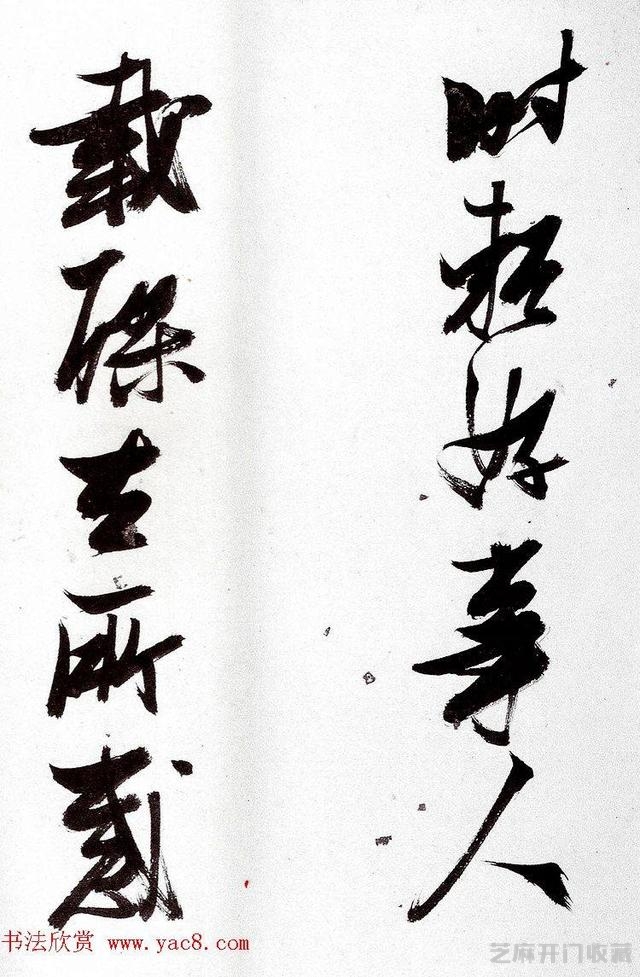 时賴好事人
載醪去所惑
书法欣赏 www.yac8.com
芝麻开门收藏